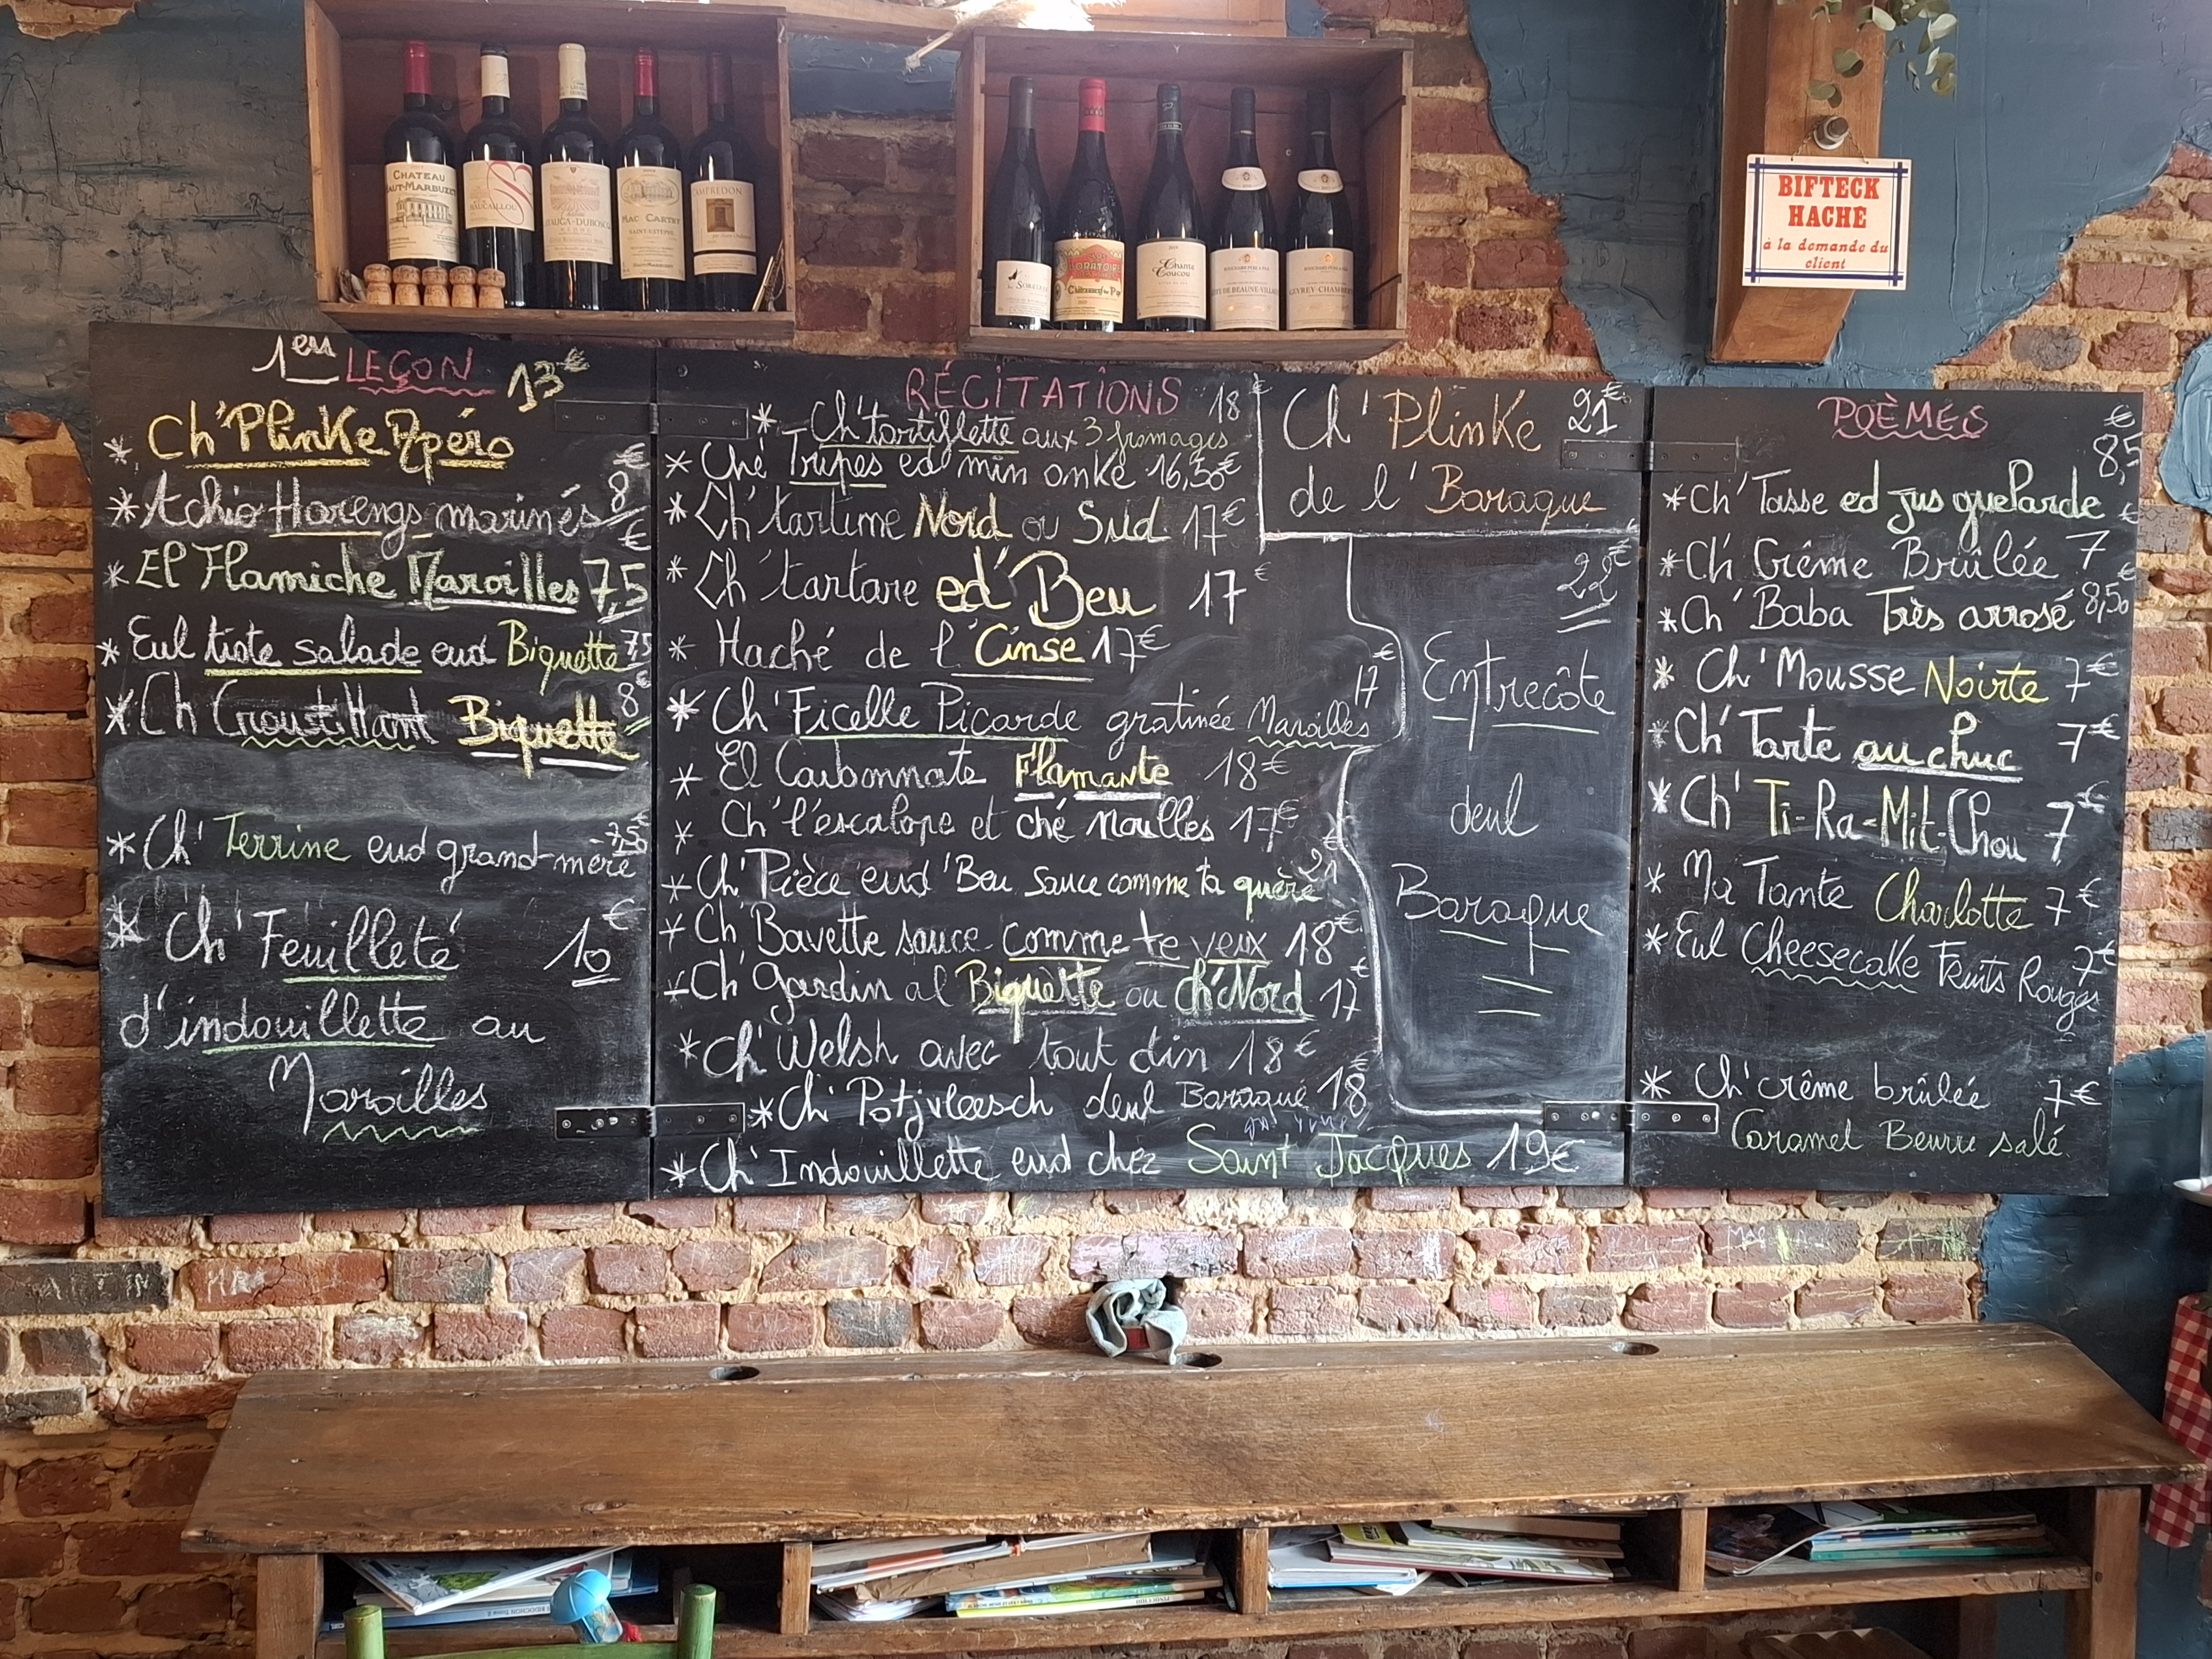 CHATEAU
HAUT-MARBUZET
MAC CARTHY
SAINT-ESTEPHE
Chante
Coucou
BIFTECK
HACHÉ
à la demande du
client
1ère LEÇON
13€
* Ch'Plinke Apéro
* Achie Harengs marinés 8€
* El Flamiche Maroilles 7,5€
* Eul tiote salade eud Biquette 7,5
* Ch Croustillant Biquette 8€
* Ch' Terrine eud grand-mère 7,50€
* Ch' Feuilleté 10€
d'indouillette au
Maroilles
RÉCITATIONS
* Ch'tartiflette aux 3 fromages 18€
* Ché Tripes ed min onke 16,50€
* Ch'tartine Nord ou Sud 17€
* Ch'tartare ed'Beu 17€
* Haché de l'Cinse 17€
* Ch'Ficelle Picarde gratinée Maroilles 17€
* El Carbonnate Flamante 18€
* Ch'l'éscalope et ché nouilles 17€
* Ch'Pièce eud'Beu sauce comme ta quère 21
* Ch'Bavette sauce comme te veux 18€
* Ch'Gardin al Biquette ou ch'Nord 17€
* Ch'Welsh avec tout din 18€
* Ch' Potjvleesch deul Baraque 18€
* Ch'Indouillette eud chez Saint Jacques 19€
Ch'Plinke 21€
de l'Baraque
22€
Entrecôte
deul
Baraque
POÈMES
* Ch'Tasse ed jus guelarde 8,5€
* Ch' Crême Brûlée 7€
* Ch' Baba Très arrosé 8,50€
* Ch'Mousse Noirte 7€
* Ch'Tarte au chuc 7€
* Ch' Ti-Ra-Mit-Chou 7€
* Ma Tante Charlotte 7€
* Eul Cheesecake Fruits Rouges 7€
* Ch'crême brûlée 7€
Caramel Beurre salé